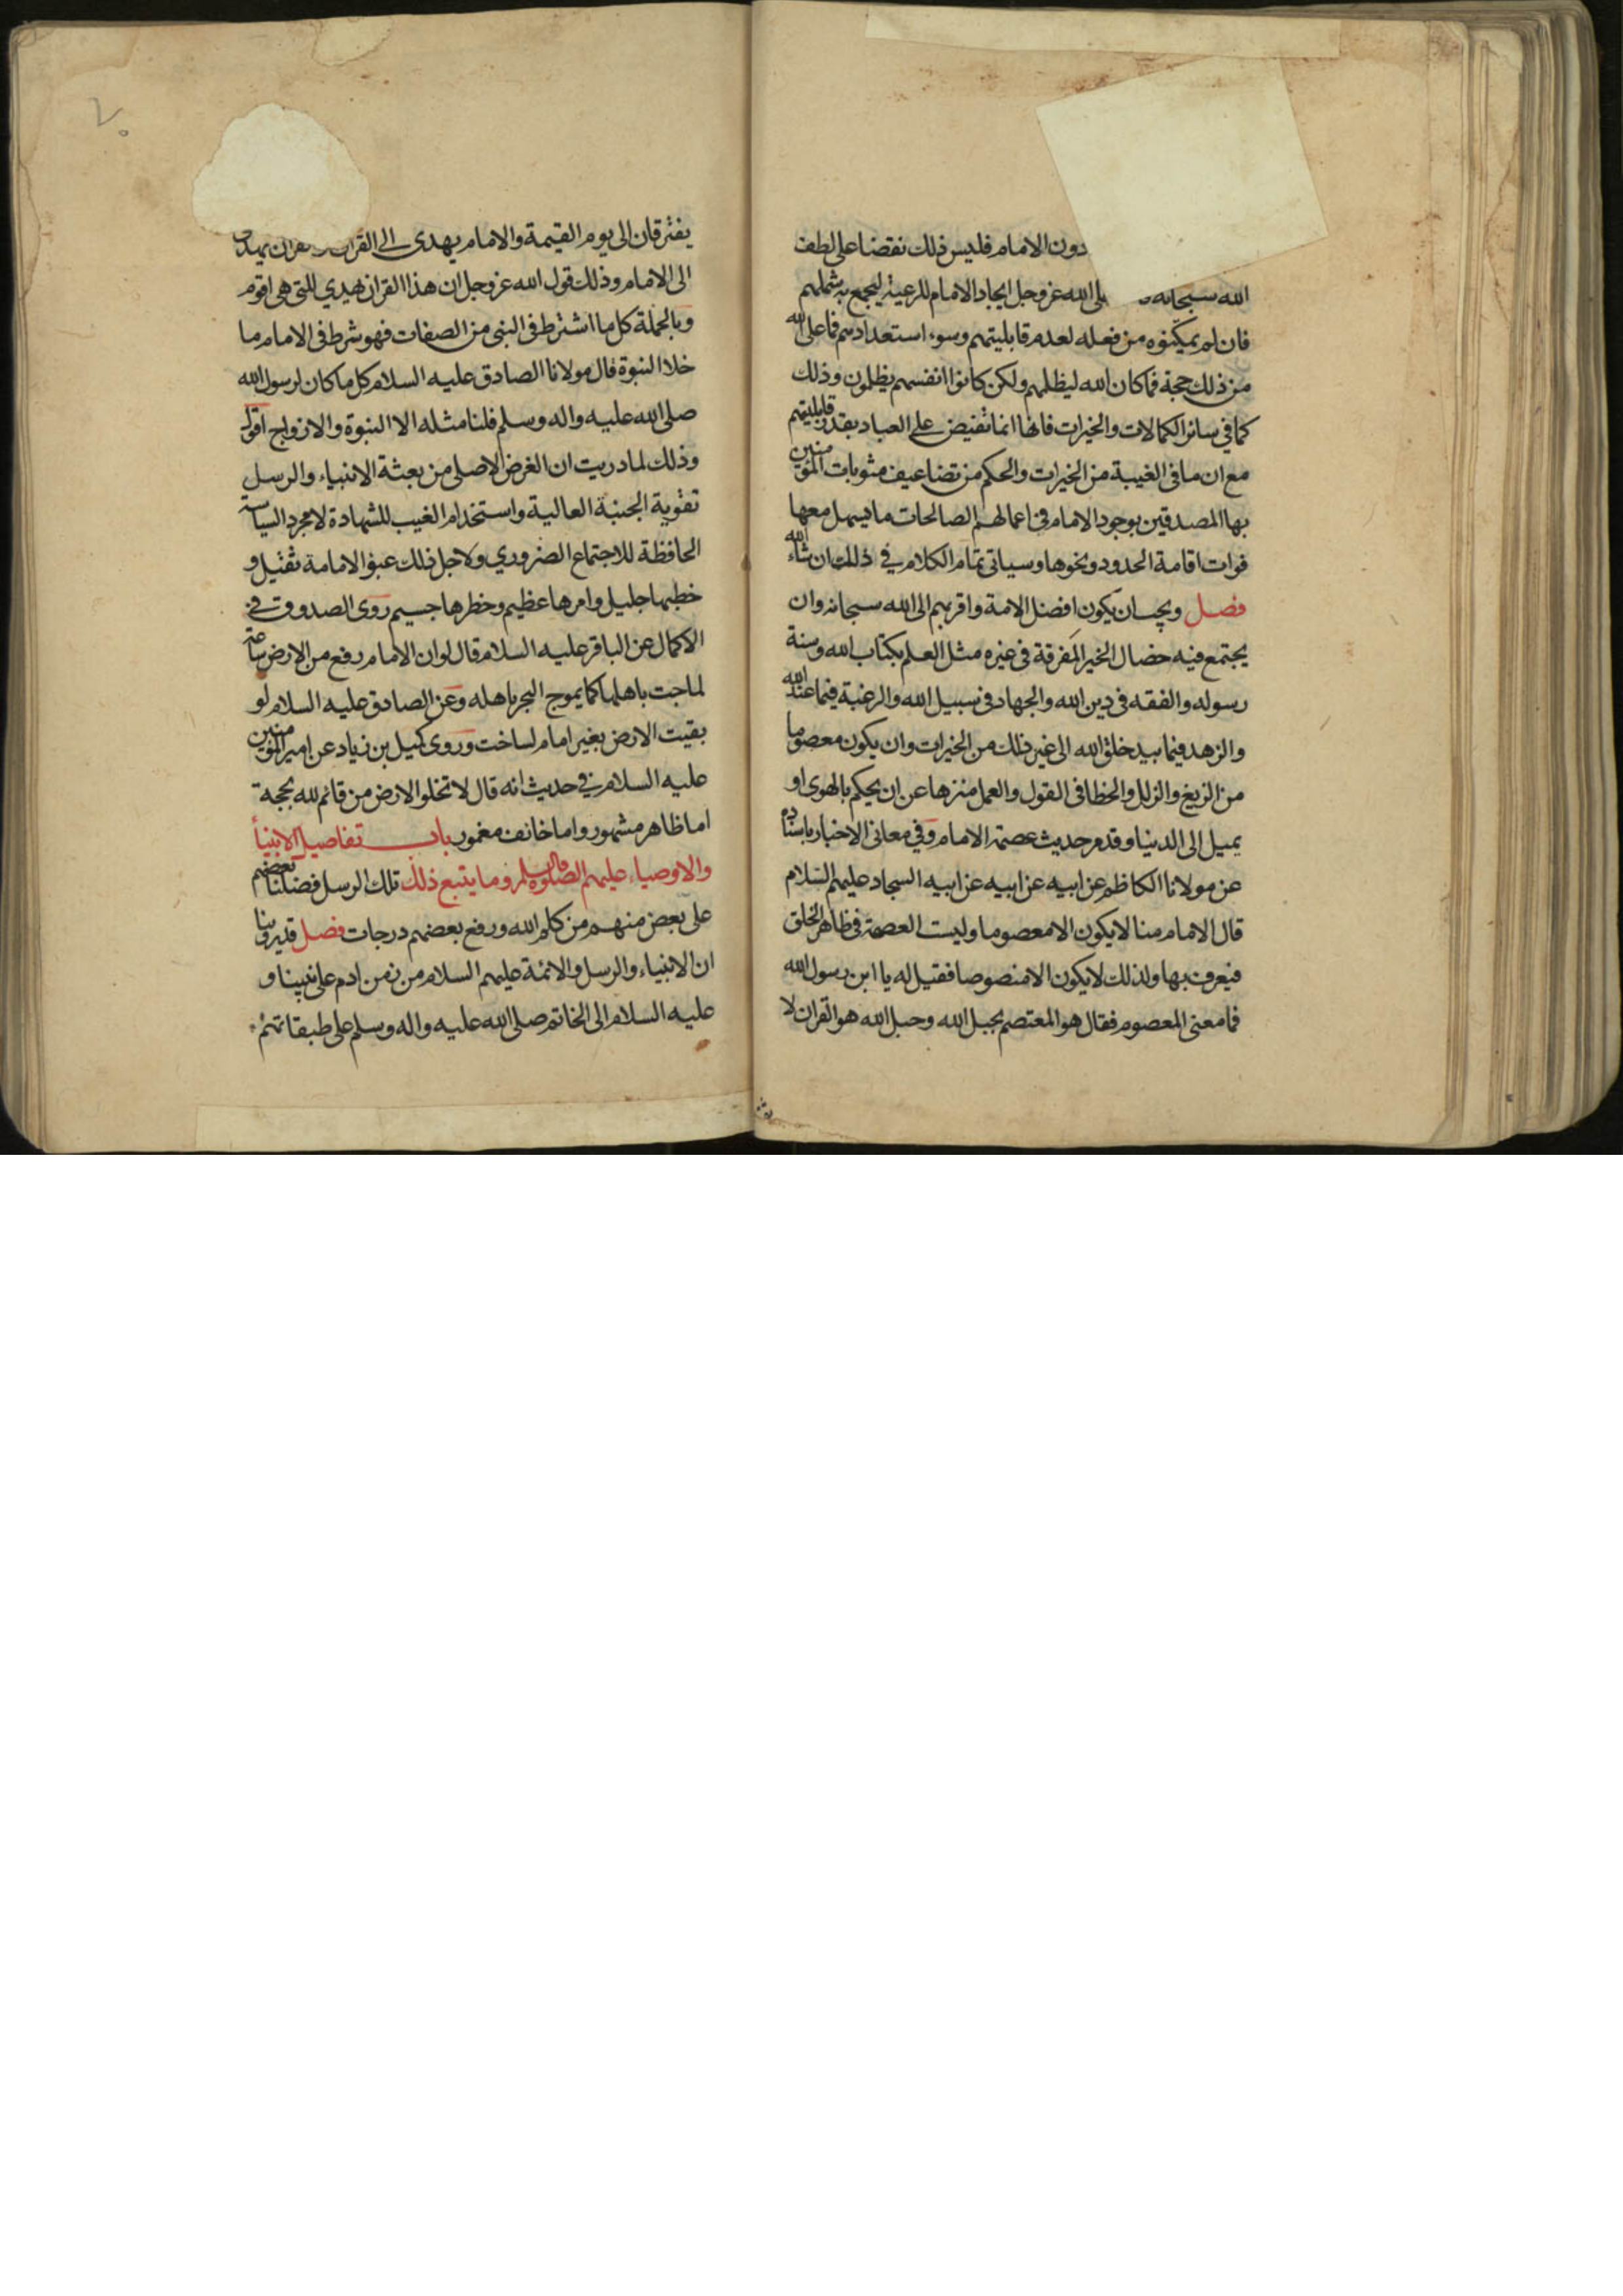 دون الامام فليس ذلك نقضا على لطف
الله سبحانه على الله عز وجل ايجاد الامام للرعية ليجمع به شملهم
فان لم يمكنوه من فعله لعدم قابليتهم وسوء استعدادهم فما على الله
من ذلك حجة فما كان الله ليظلمهم ولكن كانوا انفسهم يظلمون وذلك
كما في سائر الكمالات والخيرات فانها انما تفيض على العباد بقدر قابليتهم
مع ان ما في الغيبة من الخيرات والحكم من تضاعيف مثوبات المؤمنين
بها المصدقين بوجود الامام في اعمالهم الصالحات ما يسهل معها
فوات اقامة الحدود ونحوها وسياتى تمام الكلام في ذلك ان شاء الله
فصل ويجب ان يكون افضل الامة واقربهم الى الله سبحانه وان
يجتمع فيه خصال الخير المفرقة في غيره مثل العلم بكتاب الله وسنة
رسوله والفقه في دين الله والجهاد في سبيل الله والرغبة فيما عند الله
والزهد فيما بيد خلق الله الى غير ذلك من الخيرات وان يكون معصوما
من الزيغ والزلل والخطا في القول والعمل منزها عن ان يحكم بالهوى او
يميل الى الدنيا وقد مر حديث عصمة الامام وفي معانى الاخبار باسناده
عن مولانا الكاظم عن ابيه عن ابيه عن ابيه السجاد عليهم السلام
قال الامام منا لا يكون الا معصوما وليست العصمة في ظاهر الخلق
فيعرف بها ولذلك لا يكون الا منصوصا فقيل له يا ابن رسول الله
فما معنى المعصوم فقال هو المعتصم بحبل الله وحبل الله هو القران لا
يفترقان الى يوم القيمة والامام يهدى الى القران والقران يهدى
الى الامام وذلك قول الله عز وجل ان هذا القران يهدي للتى هى اقوم
وبالجملة كل ما اشترط في النبى من الصفات فهو شرط في الامام ما
خلا النبوة قال مولانا الصادق عليه السلام كل ما كان لرسول الله
صلى الله عليه واله وسلم فلنا مثله الا النبوة والازواج اقول
وذلك لما دريت ان الغرض الاصلى من بعثة الانبياء والرسل
تقوية الجنبة العالية واستخدام الغيب للشهادة لا مجرد السياسة
الحافظة للاجتماع الضروري ولاجل ذلك عبؤ الامامة ثقيل و
خطبها جليل وامرها عظيم وخطرها جسيم روى الصدوق في
الاكمال عن الباقر عليه السلام قال لو ان الامام رفع من الارض ساعة
لماجت باهلها كما يموج البحر باهله وعن الصادق عليه السلام لو
بقيت الارض بغير امام لساخت وروى كميل بن زياد عن امير المؤمنين
عليه السلام في حديث انه قال لا تخلوا الارض من قائم لله بحجة
اما ظاهر مشهور واما خائف مغمور باب تفاصيل الانبيأ
والاوصياء عليهم الصلوة والسلم وما يتبع ذلك تلك الرسل فضلنا بعضهم
على بعض منهم من كلم الله ورفع بعضهم درجات فصل قد روينا
ان الانبياء والرسل والائمة عليهم السلام من زمن ادم على نبينا و
عليه السلام الى الخاتم صلى الله عليه واله وسلم على طبقاتهم